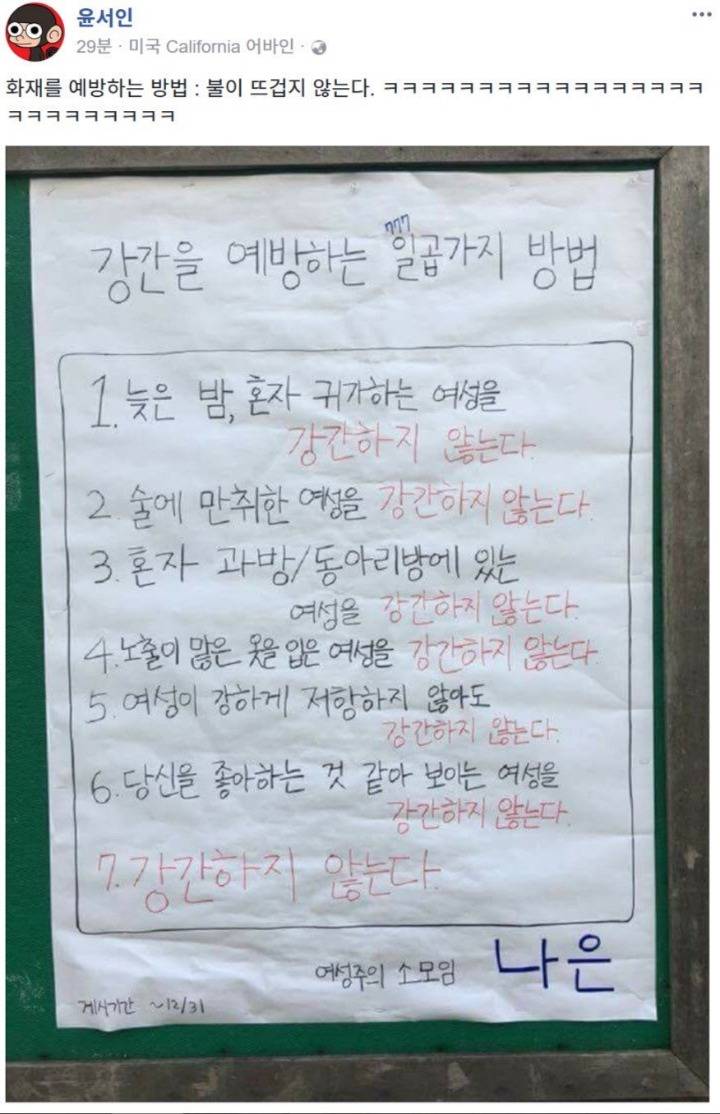 윤서인
29분 · 미국 California 어바인 ·
화재를 예방하는 방법 : 불이 뜨겁지 않는다. ㅋㅋㅋㅋㅋㅋㅋㅋㅋㅋㅋㅋㅋㅋㅋㅋㅋ
ㅋㅋㅋㅋㅋㅋㅋㅋㅋ
777
강간을 예방하는 일곱가지 방법
1. 늦은 밤, 혼자 귀가하는 여성을
강간하지 않는다.
2. 술에 만취한 여성을 강간하지 않는다.
3. 혼자 과방/동아리방에 있는
여성을 강간하지 않는다.
4. 노출이 많은 옷을 입은 여성을 강간하지 않는다
5. 여성이 강하게 저항하지 않아도
강간하지 않는다.
6. 당신을 좋아하는 것 같아 보이는 여성을
강간하지 않는다.
7. 강간하지 않는다.
여성주의 소모임 나은
게시기간 ~12/31